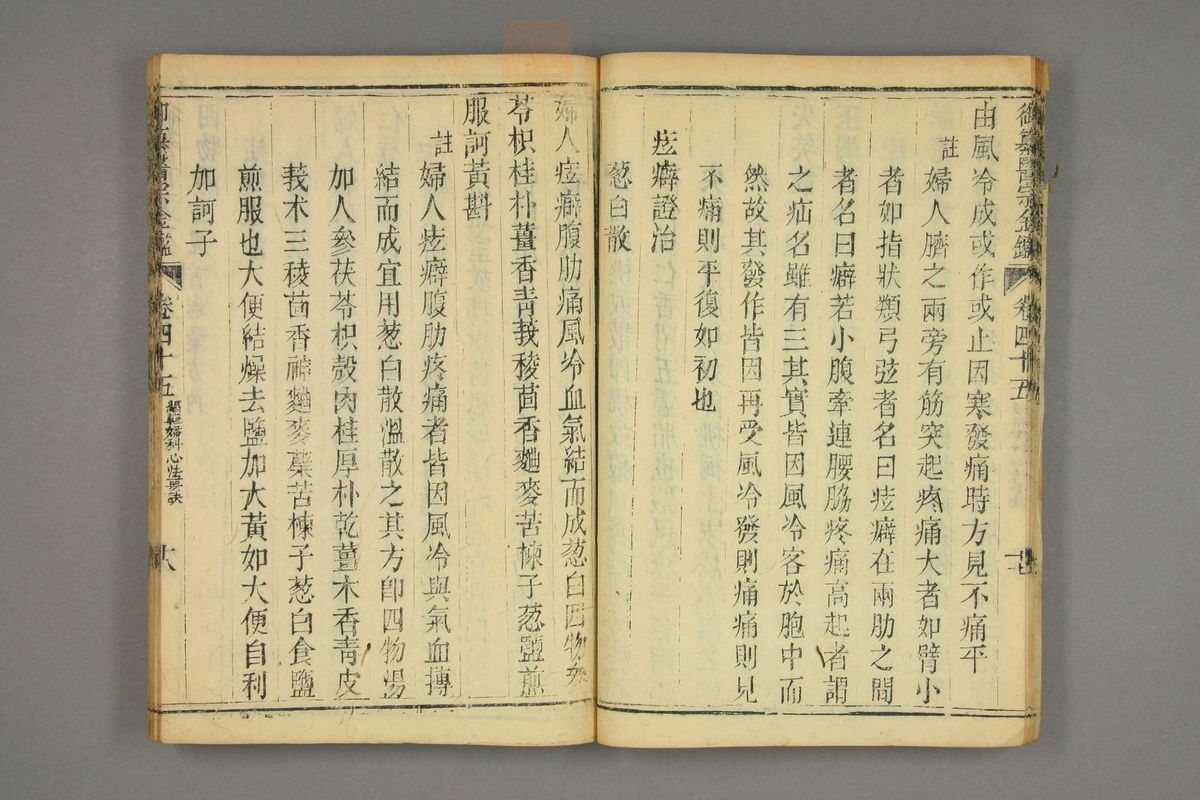 御纂醫宗金鑑 卷四十五 十七
由風冷成或作或止因寒發痛時方見不痛平
註
婦人臍之兩旁有筋突起疼痛大者如臂小
者如指狀類弓弦者名曰痃癖在兩肋之間
者名曰癖若小腹牽連腰脇疼痛高起者謂
之疝名雖有三其實皆因風冷客於胞中而
然故其發作皆因再受風冷發則痛痛則見
不痛則平復如初也
痃癖證治
葱白散
婦人痃癖腹肋痛風冷血氣結而成葱白四物參
苓枳桂朴薑香青莪稜茴香麯麥苦楝子葱鹽煎
服訶黃斟
註
婦人痃癖腹肋疼痛者皆因風冷與氣血摶
結而成宜用葱白散溫散之其方卽四物湯
加人參茯苓枳殼肉桂厚朴乾薑木香青皮
莪术三稜茴香神麯麥蘗苦楝子葱白食鹽
煎服也大便結燥去鹽加大黃如大便自利
加訶子
御纂醫宗金鑑 卷四十五 編輯婦科心法要訣 十八